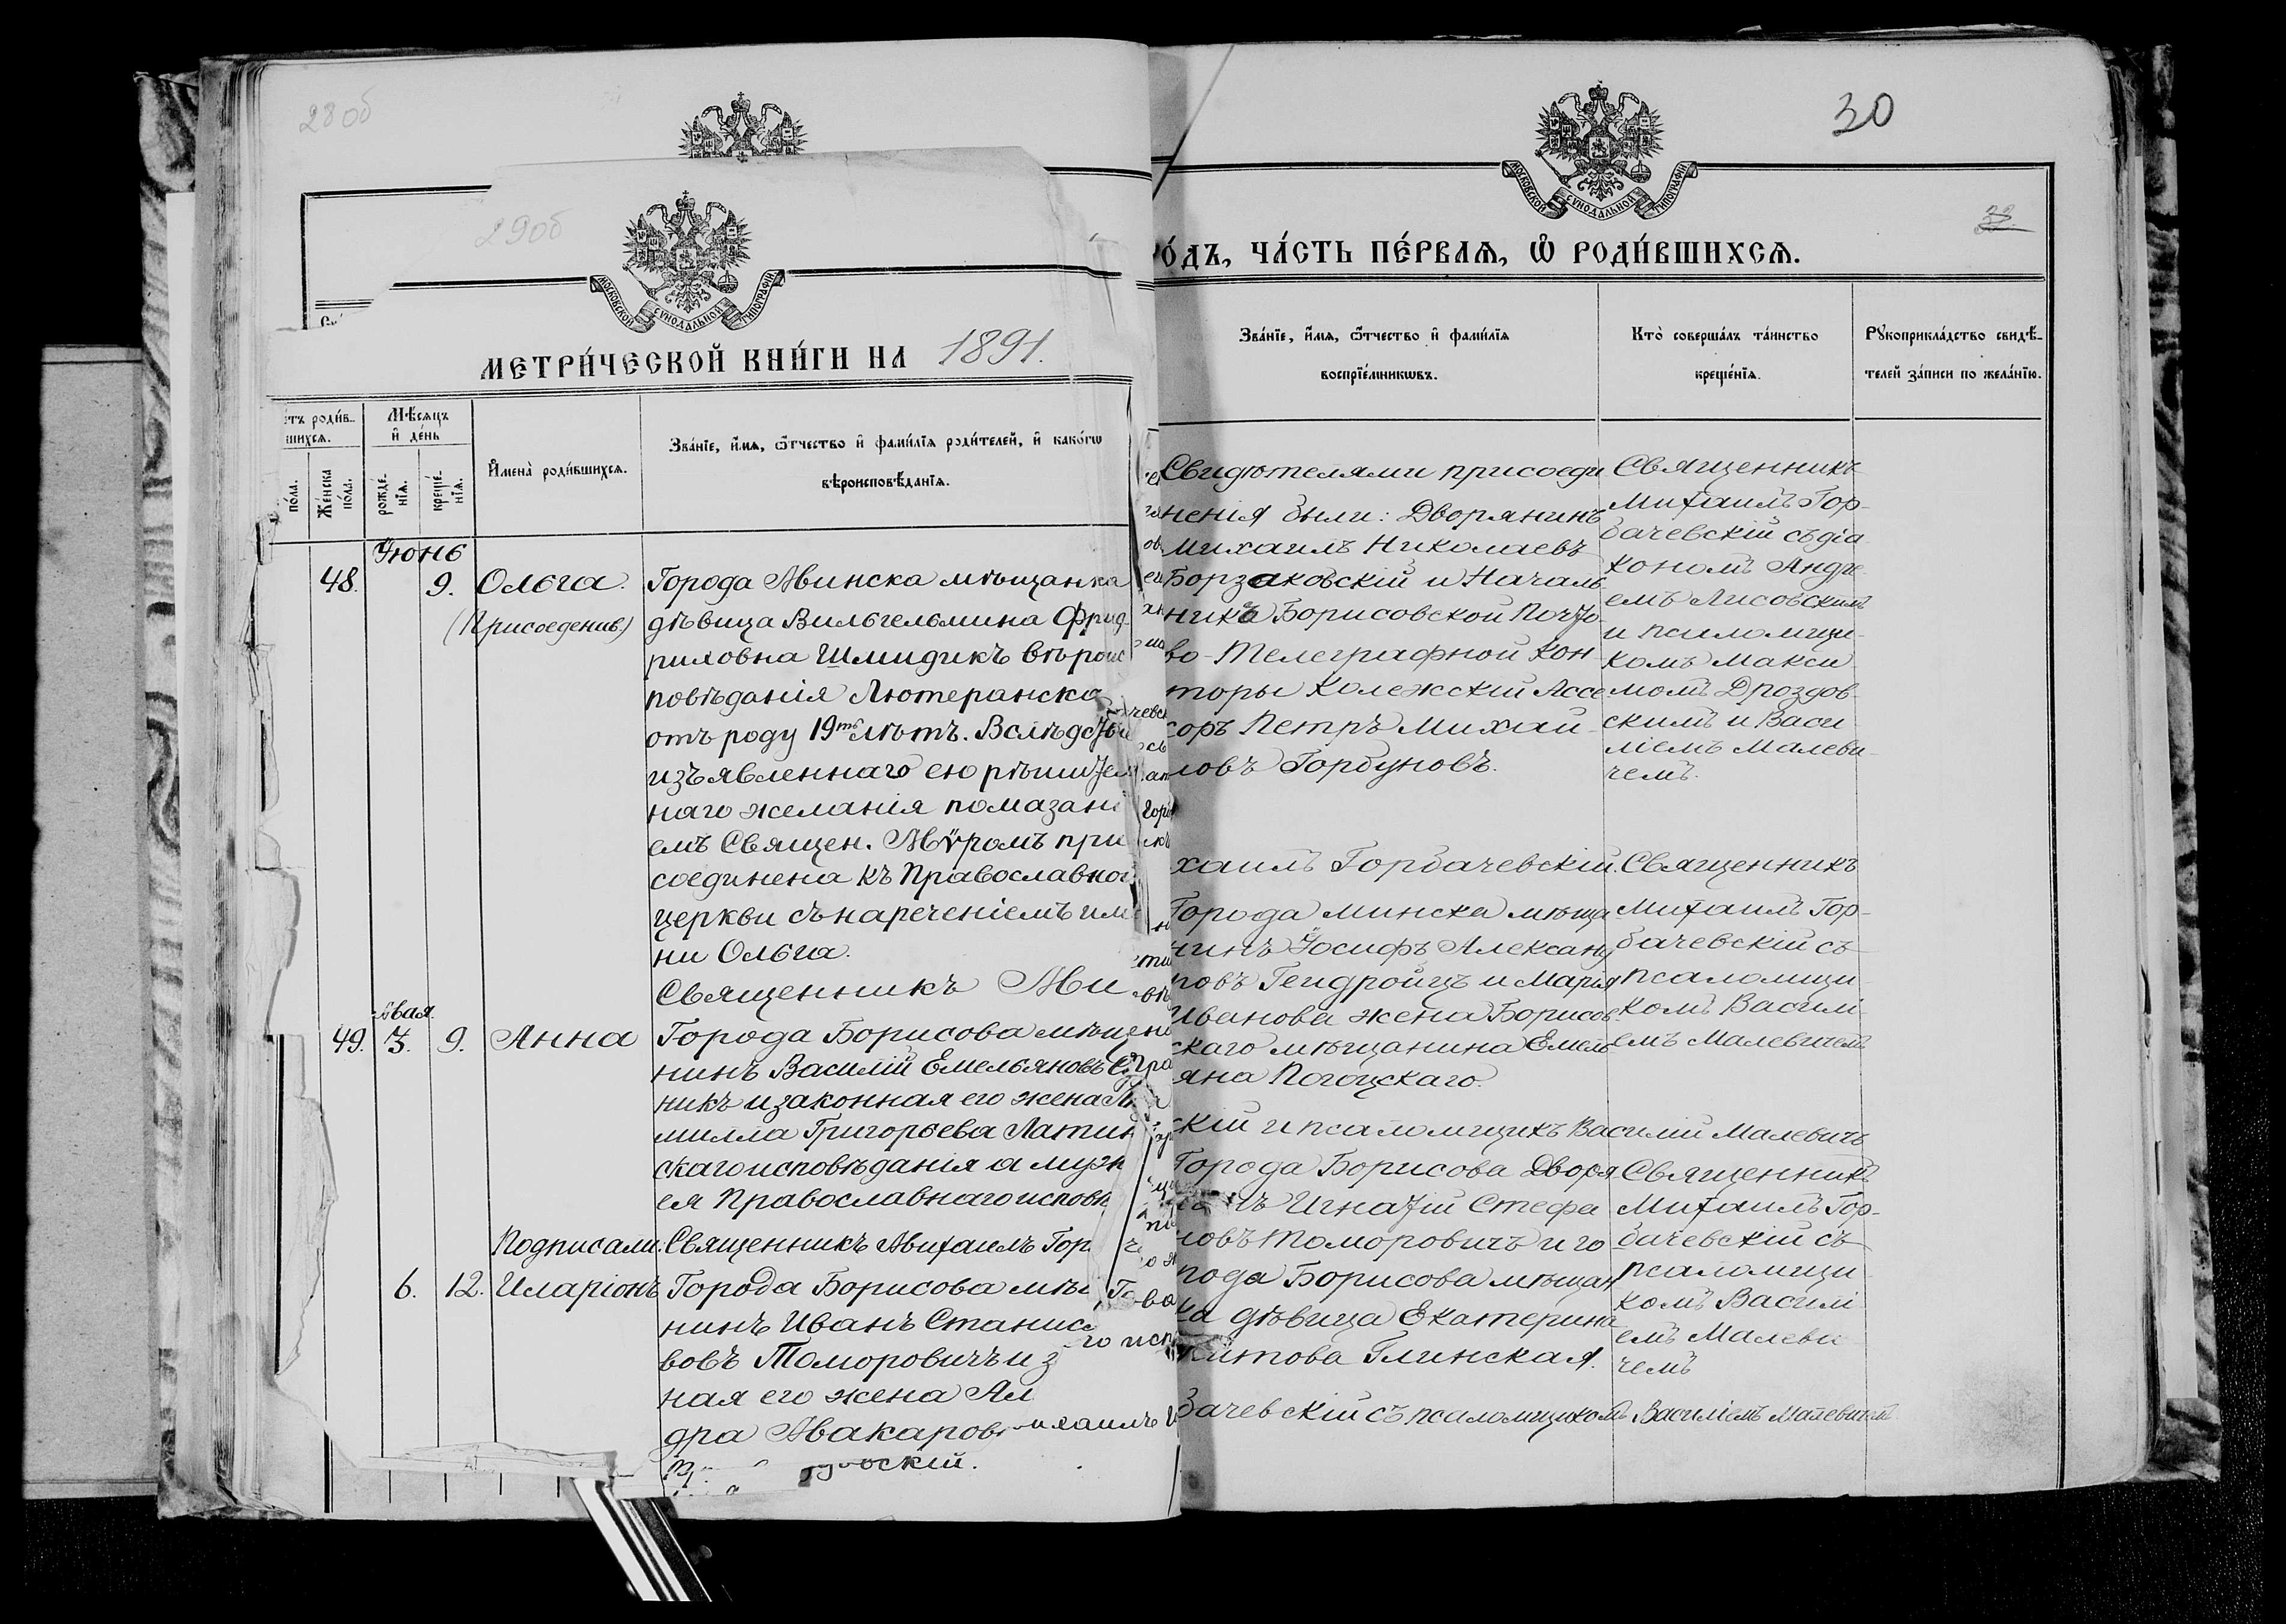 28об
30
29об
МОСКОВСКОЙ СѴНОДАЛЬНОЙ ТИПОГРАФІИ
МОСКОВСКОЙ СѴНОДАЛЬНОЙ ТИПОГРАФІИ
МЕТРИ́ЧЕСКОЙ КНИ́ГИ НА 1891.
роди́в-
шихсѧ.
Мѣ́сѧцъ
и҆ де́нь
по́ла.
Же́нска
по́ла.
рожде́-
нїѧ.
креще́-
нїѧ.
И҆мена̀ роди́вшихсѧ.
Зва́нїе, и҆́мѧ, ѻ҆́тчество и҆ фами́лїѧ роди́телей, и҆ како́гѡ
вѣроисповѣ́данїѧ.
Іюнь
48. 9. Ольга.
(Присоеденив)
Города Минска мѣщанка
дѣвица Вильгельмина Фрид-
риховна Шмидикъ вѣроис
повѣданія Лютеранска
отъ роду 19ть лѣтъ. Вслѣдстви
изъявленнаго ею рѣшител
наго желанія помазані
емъ Священ. Мѵромъ при
соединена къ Православной
церкви съ нареченіемъ име
ни Ольга.
Священникъ Ми
Мая.
49. 3. 9. Анна
Города Борисова мѣщани
нинъ Василій Емельяновъ
никъ и законная его жена
милла Григорьева Латин
скаго исповѣданія а муж
ея Православнаго исповѣ
Подписали: Священникъ Михаилъ Гор
6. 12. Иларіонъ
Города Борисова мѣщ
нинъ Иванъ Станис
вовъ Томоровичъ и з
ная его жена Ал
дра Макаров
скій.
РО́ДЪ, ЧА́СТЬ ПЕ́РВАѦ, Ѡ҆ РОДИ́ВШИХСѦ.
Зва́нїе, и҆́мѧ, ѻ҆́тчество и҆ фами́лїѧ
воспрїе́мникѡвъ.
Кто̀ соверша́лъ та́инство
креще́нїѧ.
Рꙋкоприкла́дство свидѣ́-
телей за́писи по жела́нїю.
Свидѣтелями присоеди
ненія были: Дворянинъ
Михаилъ Николаевъ
Борзаковскій и Началь
никъ Борисовской Почто-
во-Телеграфной Кон
торы Колежскій Ассе
соръ Петръ Михай-
ловъ Горбуновъ.
Священникъ
Михаилъ Гор-
бачевскій съ діа
кономъ Андре-
емъ Лисовскимъ
и псаломщи-
комъ Макси
момъ Дроздов-
скимъ и Васи
ліемъ Малеви-
чемъ.
хаилъ Горбачевскій.
Города Минска мѣща
нинъ Іосифъ Александ
ровъ Гендройцъ и Марія
Иванова жена Борисов-
скаго мѣщанина Емель
яна Погоцскаго.
Священникъ
Михаилъ Гор-
бачевскій съ
псаломщи
комъ Василі
емъ Малевичемъ
скій и псаломщикъ Василій Малевичъ
Города Борисова Дворя
нъ Игнатій Стефа
новъ Томоровичъ и го
рода Борисова мѣщан
ка дѣвица Екатерина
Титова Глинская.
Священникъ
Михаилъ Гор-
бачевскій съ
псаломщи
комъ Василі
емъ Малеви
чемъ
бачевскій съ псаломщикомъ Василіемъ Малевичемъ